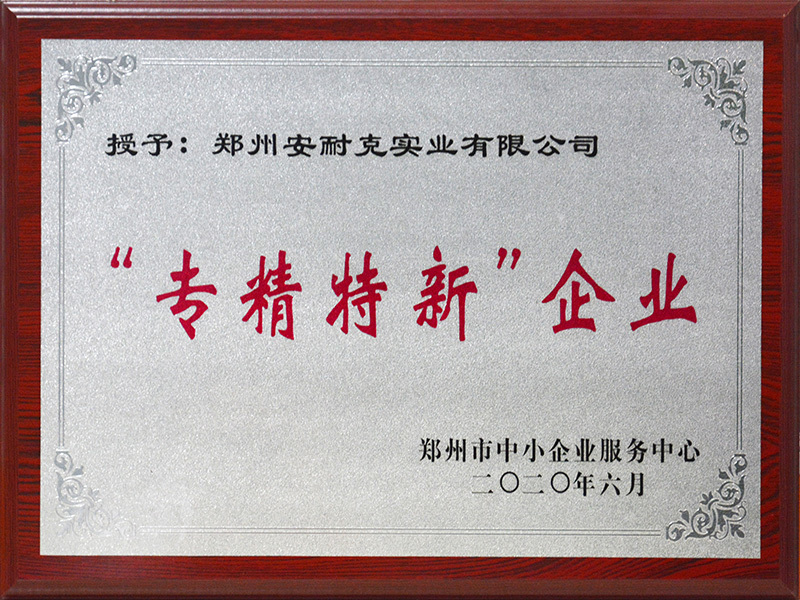 授予：郑州安耐克实业有限公司
“专精特新”企业
郑州市中小企业服务中心
二〇二〇年六月